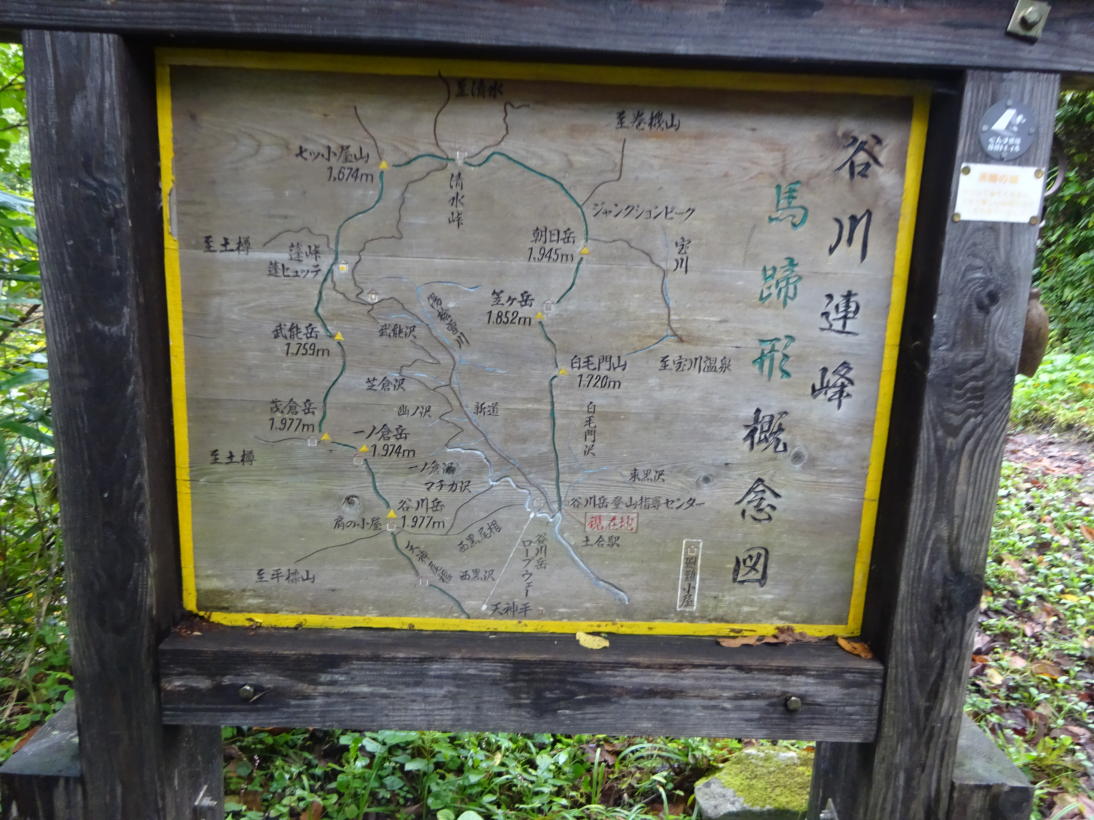 谷川連峰
馬蹄形概念図
至清水
至巻機山
七ッ小屋山
1,674m
清水峠
ジャンクションピーク
朝日岳
1,945m
宝川
至土樽
蓬峠
蓬ヒュッテ
笠ヶ岳
1.852m
武能沢
武能岳
1.759m
白毛門山
1.720m
至宝川温泉
芝倉沢
幽ノ沢
新道
白毛門沢
茂倉岳
1.977m
一ノ倉岳
1.974m
至土樽
一ノ倉沢
マチガ沢
東黒沢
谷川岳
1.977m
肩の小屋
谷川岳登山指導センター
現在地
土合駅
西黒尾根
谷川岳
ロープウェー
天神尾根
西黒沢
至平標山
天神平